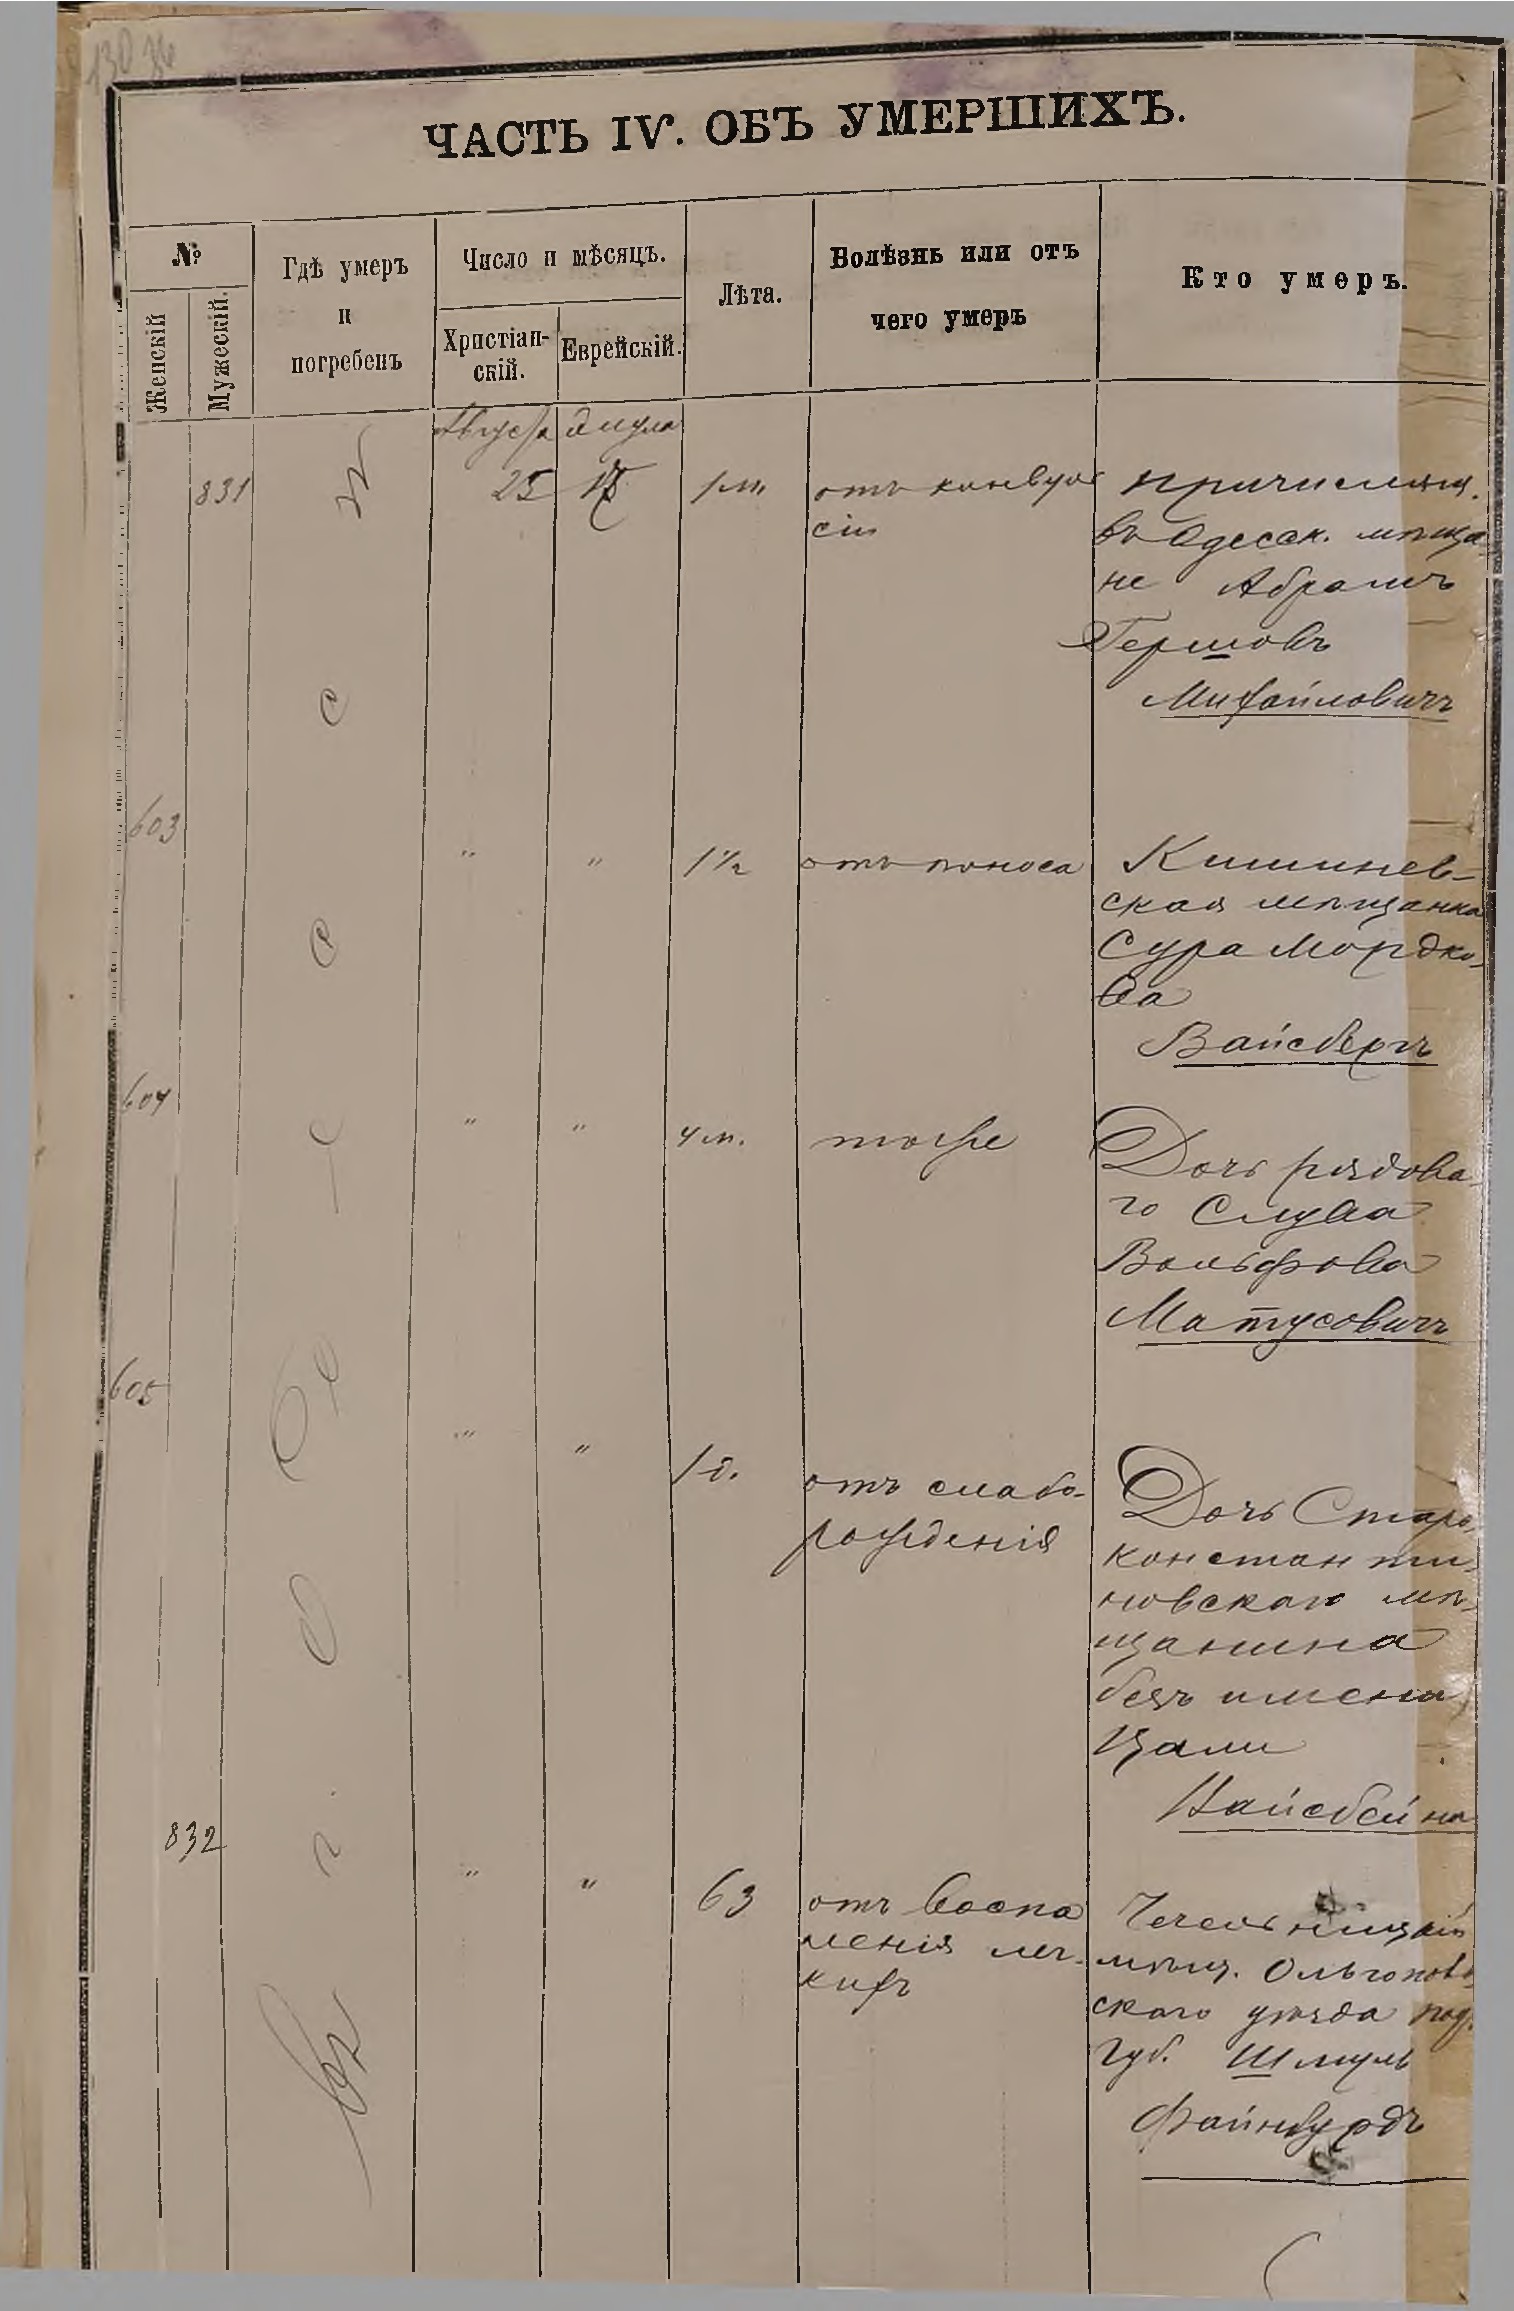 ЧАСТЬ IV. ОБЪ УМЕРШИХЪ.
№
Женскій
Мужескій.
Гдѣ умеръ
и
погребенъ
Число и мѣсяцъ.
Христіан-
скій.
Еврейскій.
Лѣта.
Болѣзнь или отъ
чего умеръ
Кто умеръ.
въ г. Одессѣ
Августа
831
25
1 м.
отъ конвуль
сіи
причислящ.
въ Одесск. мѣща
не Абрамъ
Гершовъ
Михайловичъ
603
" "
1 ½
отъ поноса
Кишинев-
ская мѣщанка
Сура Мордко-
ва
Вайсбергъ
604
" "
4 м.
тоже
Дочь рядова-
го Слува
Вольфова
Матусовичъ
605
" "
1 д.
отъ слабо-
рожденія
Дочь Старо-
константи-
новскаго мѣ-
щанина
безъ имени
Цали
Вайсбейна
832
" "
63
отъ воспа
ленія лег-
кихъ
Чечельницкій
мѣщ. Ольгопольв
скаго уѣзда под.
губ. Шмуль
Файнбурдъ